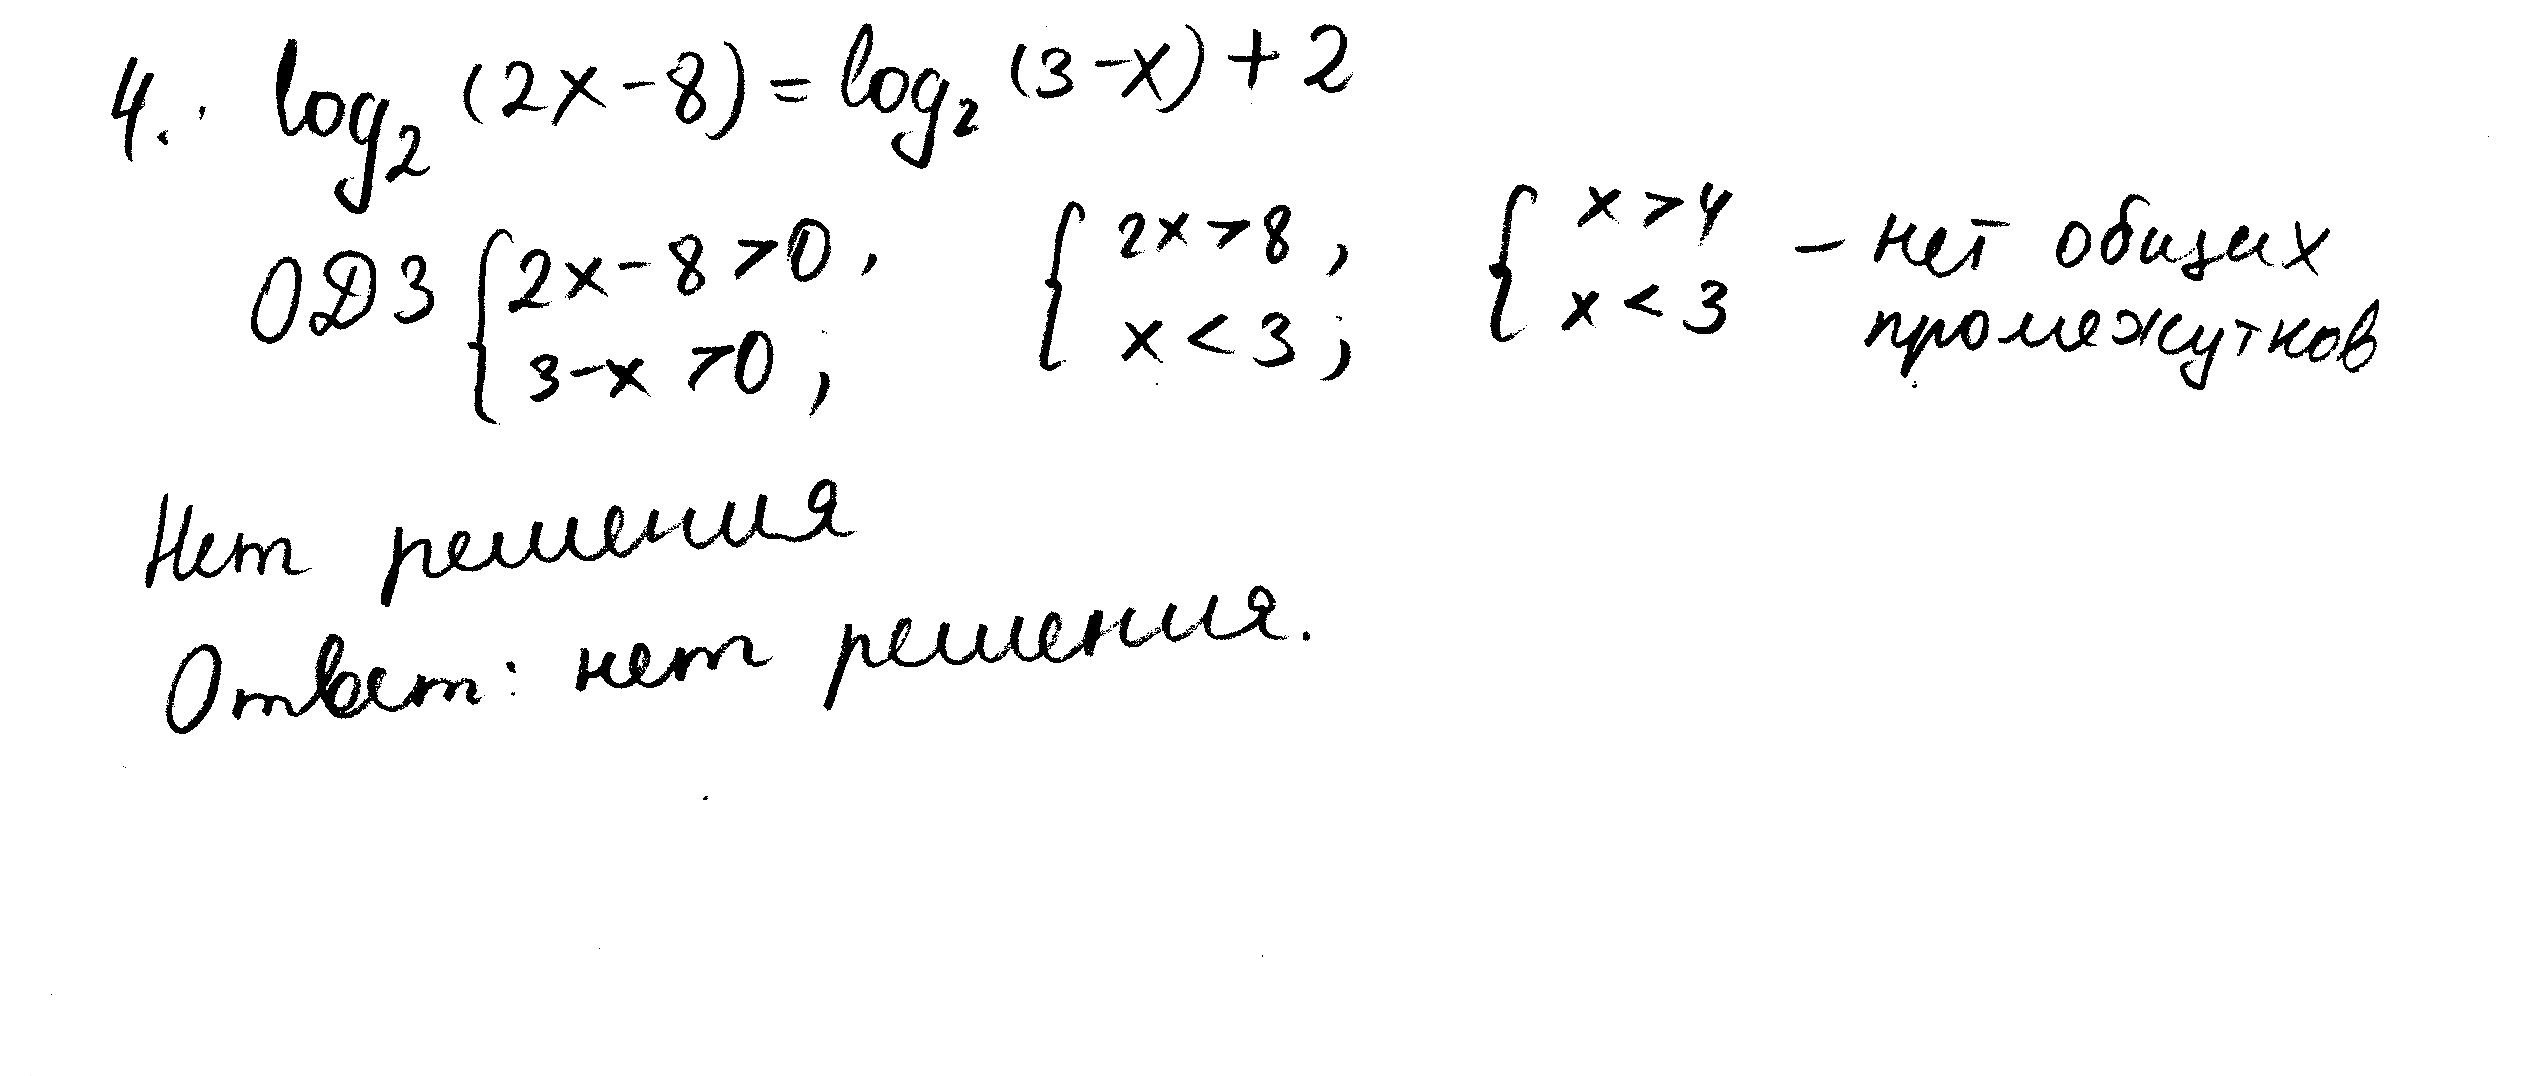 4. log₂ (2x-8) = log₂ (3-x) + 2
ОДЗ { 2x-8>0, { 2x>8, { x>4 - нет общих
3-x>0; x<3; x<3 промежутков
Нет решения
Ответ: нет решения.